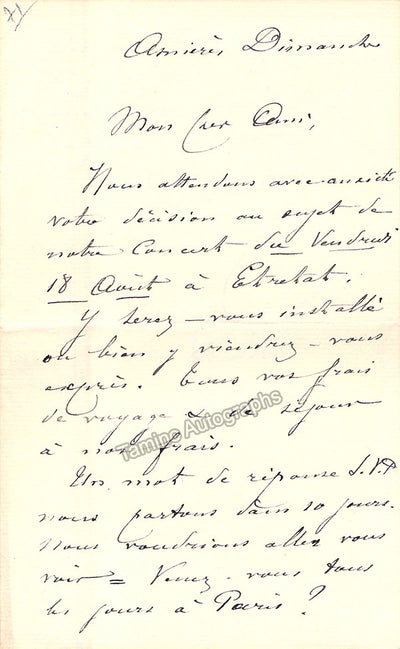 71
Asnières Dimanche
Mon cher Ami,
Nous attendons avec anxiété
votre décision au sujet de
notre Concert du Vendredi
18 Août à Etretat.
Y serez-vous installé
ou bien y viendrez-vous
exprès. Tous vos frais
de voyage & de séjour
à nos frais.
Tamino Autographs
Un mot de réponse S.V.P
nous partons dans 10 jours.
Nous voudrions aller vous
voir = Venez-vous tous
les jours à Paris?